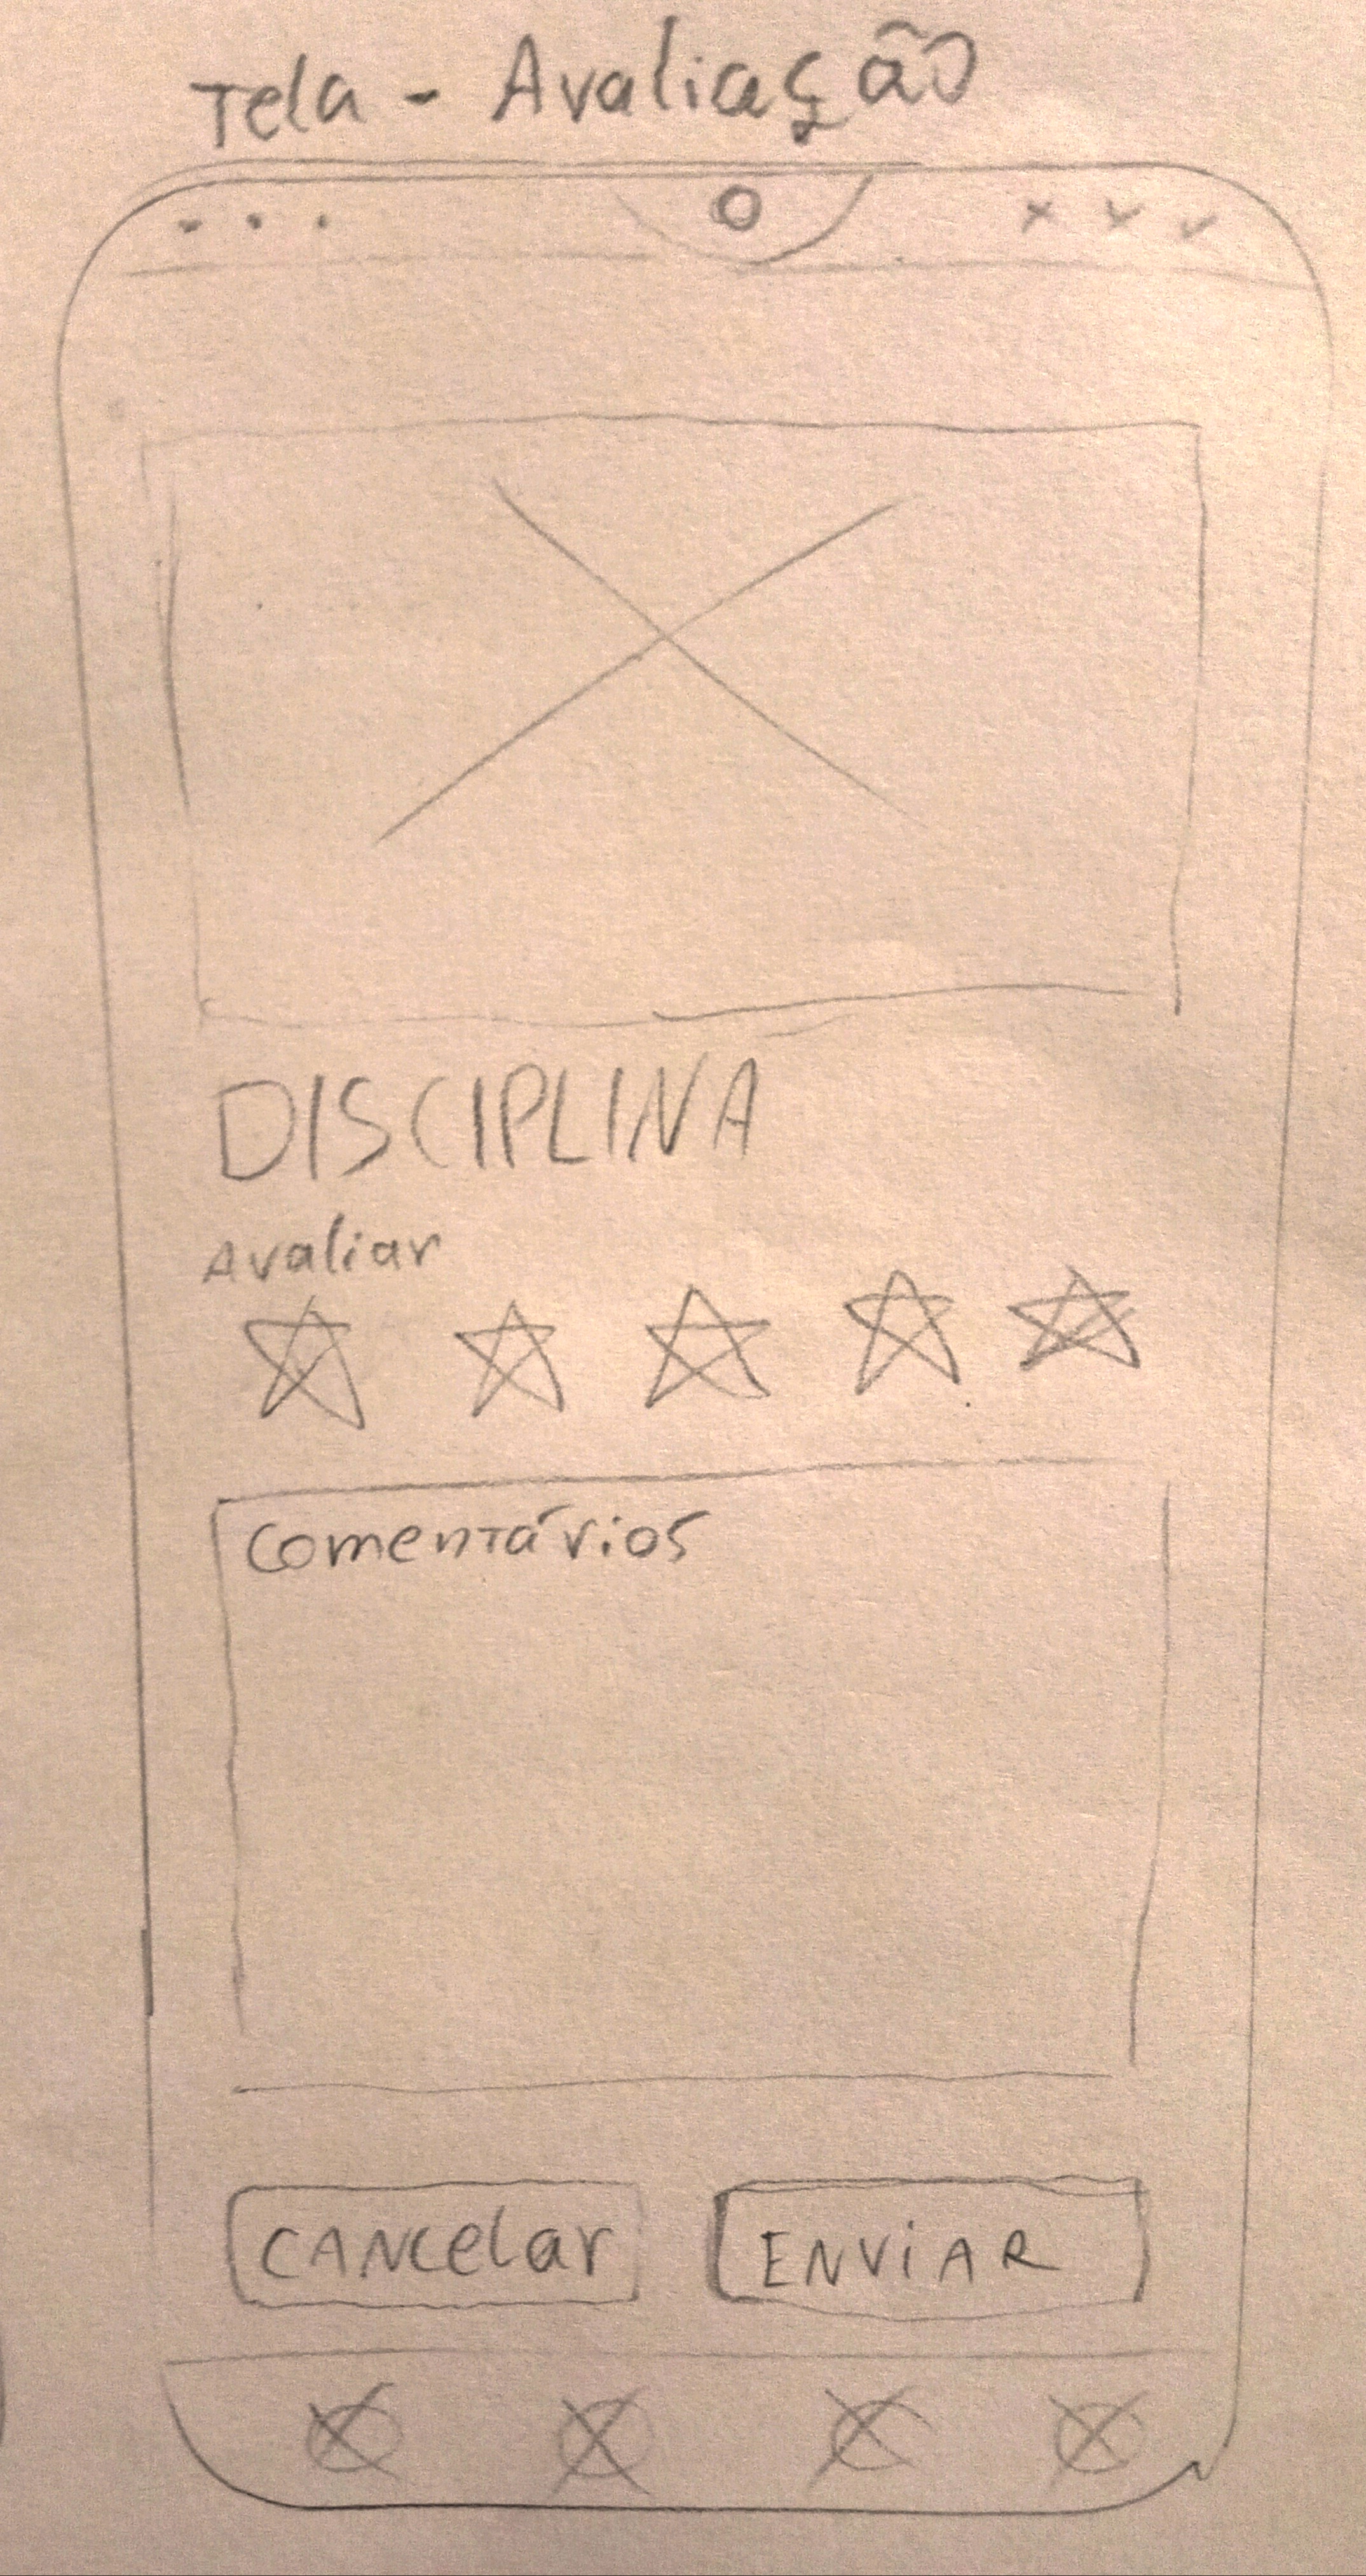 Tela - Avaliação
DISCIPLINA
Avaliar
Comentários
CANCelar
ENViAR